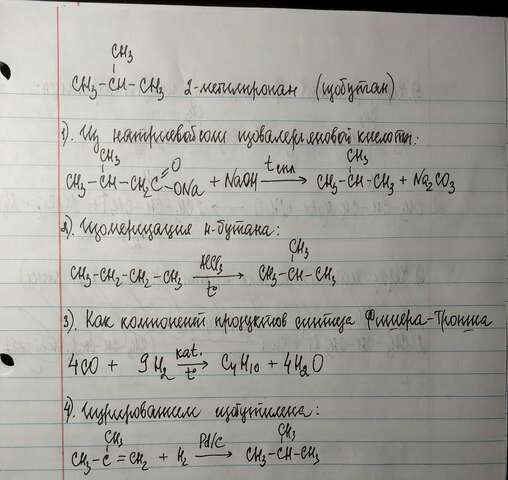 CH₃
CH₃-CH-CH₃ 2-метилпропан (изобутан)
1). Из натриевой соли изовалериановой кислоты:
CH₃ O
CH₃-CH-CH₂C ONa + NaOH t спл → CH₃-CH-CH₃ + Na₂CO₃
CH₃
2). Изомеризация н-бутана:
CH₃
CH₃-CH₂-CH₂-CH₃ AlCl₃ t° → CH₃-CH-CH₃
3). Как компонент продуктов синтеза Фишера-Тропша
4CO + 9H₂ kat. t° → C₄H₁₀ + 4H₂O
4). Гидрированием изобутилена:
CH₃ CH₃
CH₃-C=CH₂ + H₂ Pd/C → CH₃-CH-CH₃